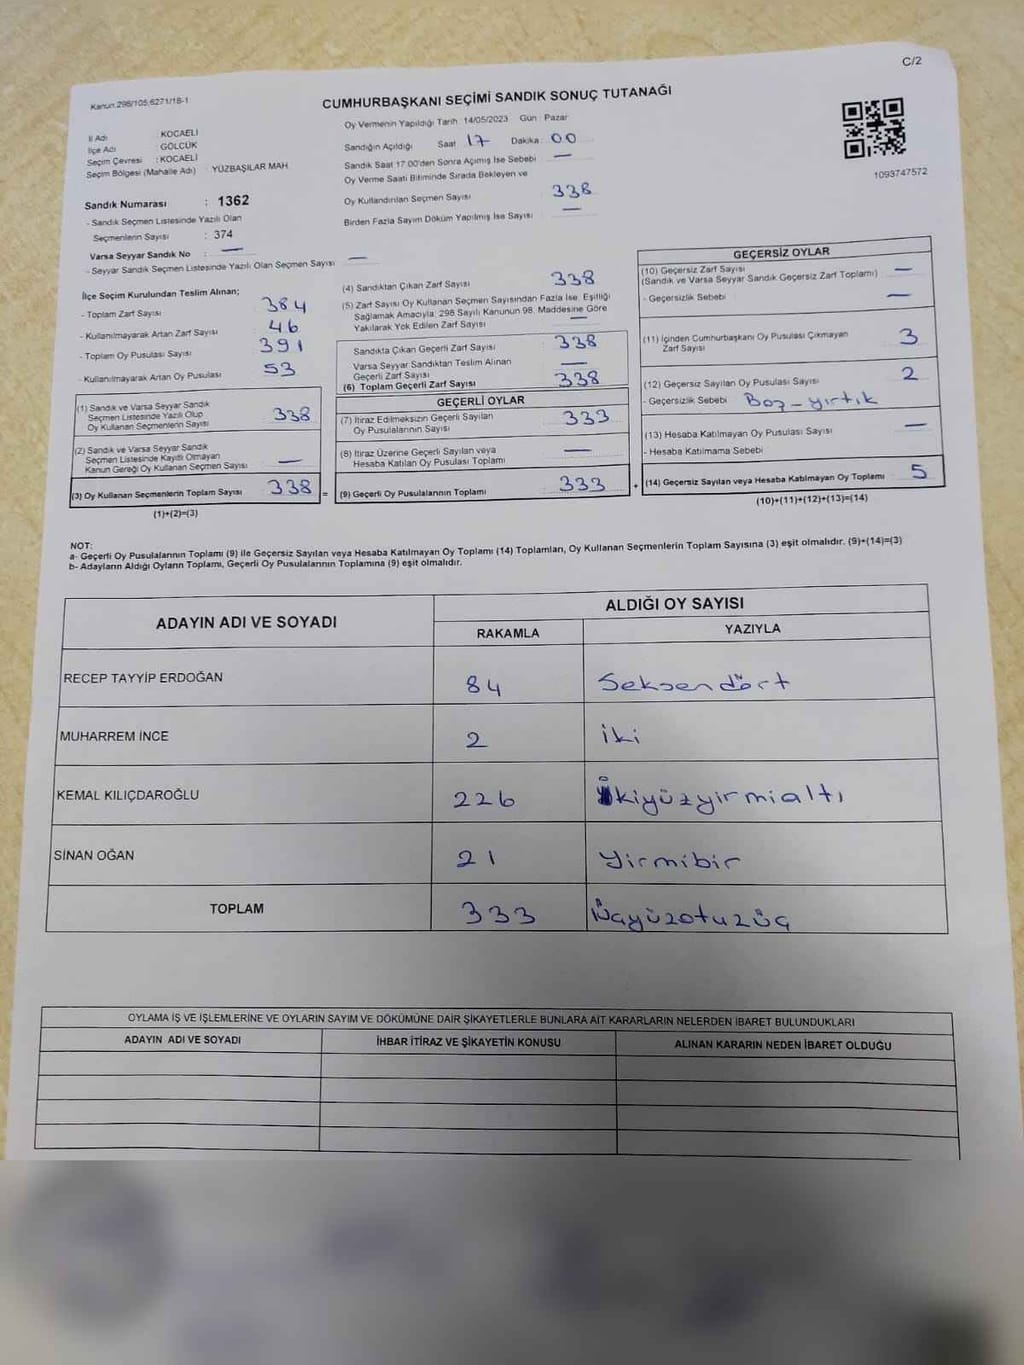 C/2
Kanun.298/105,6271/18-1
CUMHURBAŞKANI SEÇİMİ SANDIK SONUÇ TUTANAĞI
İl Adı : KOCAELİ
İlçe Adı : GÖLCÜK
Seçim Çevresi : KOCAELİ
Seçim Bölgesi (Mahalle Adı) : YÜZBAŞILAR MAH.
Sandık Numarası : 1362
- Sandık Seçmen Listesinde Yazılı Olan
Seçmenlerin Sayısı : 374
Varsa Seyyar Sandık No : —
- Seyyar Sandık Seçmen Listesinde Yazılı Olan Seçmen Sayısı —
Oy Vermenin Yapıldığı Tarih: 14/05/2023 Gün : Pazar
Sandığın Açıldığı Saat 17 Dakika : 00
Sandık Saat 17.00'den Sonra Açılmış İse Sebebi —
Oy Verme Saati Bitiminde Sırada Bekleyen ve
Oy Kullandırılan Seçmen Sayısı 338
Birden Fazla Sayım Döküm Yapılmış İse Sayısı —
1093747572
İlçe Seçim Kurulundan Teslim Alınan;
- Toplam Zarf Sayısı 384
- Kullanılmayarak Artan Zarf Sayısı 46
- Toplam Oy Pusulası Sayısı 391
- Kullanılmayarak Artan Oy Pusulası 53
(1) Sandık ve Varsa Seyyar Sandık
Seçmen Listesinde Yazılı Olup
Oy Kullanan Seçmenlerin Sayısı 338
(2) Sandık ve Varsa Seyyar Sandık
Seçmen Listesinde Kayıtlı Olmayan
Kanun Gereği Oy Kullanan Seçmen Sayısı —
(3) Oy Kullanan Seçmenlerin Toplam Sayısı 338 =
(1)+(2)=(3)
(4) Sandıktan Çıkan Zarf Sayısı 338
(5) Zarf Sayısı Oy Kullanan Seçmen Sayısından Fazla İse, Eşitliği
Sağlamak Amacıyla; 298 Sayılı Kanunun 98. Maddesine Göre
Yakılarak Yok Edilen Zarf Sayısı —
Sandıkta Çıkan Geçerli Zarf Sayısı 338
Varsa Seyyar Sandıktan Teslim Alınan
Geçerli Zarf Sayısı —
(6) Toplam Geçerli Zarf Sayısı 338
GEÇERLİ OYLAR
(7) İtiraz Edilmeksizin Geçerli Sayılan
Oy Pusulalarının Sayısı 333
(8) İtiraz Üzerine Geçerli Sayılan veya
Hesaba Katılan Oy Pusulası Toplamı —
(9) Geçerli Oy Pusulalarının Toplamı 333 +
GEÇERSİZ OYLAR
(10) Geçersiz Zarf Sayısı
(Sandık ve Varsa Seyyar Sandık Geçersiz Zarf Toplamı) —
- Geçersizlik Sebebi —
(11) İçinden Cumhurbaşkanı Oy Pusulası Çıkmayan
Zarf Sayısı 3
(12) Geçersiz Sayılan Oy Pusulası Sayısı 2
- Geçersizlik Sebebi Boş - yırtık
(13) Hesaba Katılmayan Oy Pusulası Sayısı —
- Hesaba Katılmama Sebebi
(14) Geçersiz Sayılan veya Hesaba Katılmayan Oy Toplamı 5
(10)+(11)+(12)+(13)=(14)
NOT:
a- Geçerli Oy Pusulalarının Toplamı (9) ile Geçersiz Sayılan veya Hesaba Katılmayan Oy Toplamı (14) Toplamları, Oy Kullanan Seçmenlerin Toplam Sayısına (3) eşit olmalıdır. (9)+(14)=(3)
b- Adayların Aldığı Oyların Toplamı, Geçerli Oy Pusulalarının Toplamına (9) eşit olmalıdır.
ADAYIN ADI VE SOYADI
ALDIĞI OY SAYISI
RAKAMLA YAZIYLA
RECEP TAYYİP ERDOĞAN 84 Seksendört
MUHARREM İNCE 2 iki
KEMAL KILIÇDAROĞLU 226 ikiyüzyirmialtı
SİNAN OĞAN 21 Yirmibir
TOPLAM 333 Üçyüzotuzüç
OYLAMA İŞ VE İŞLEMLERİNE VE OYLARIN SAYIM VE DÖKÜMÜNE DAİR ŞİKAYETLERLE BUNLARA AİT KARARLARIN NELERDEN İBARET BULUNDUKLARI
ADAYIN ADI VE SOYADI İHBAR İTİRAZ VE ŞİKAYETİN KONUSU ALINAN KARARIN NEDEN İBARET OLDUĞU